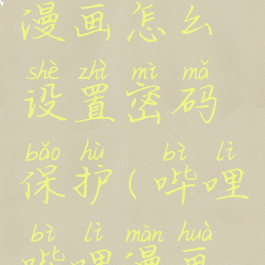 漫画怎么
shè zhì mì mǎ
设置密码
bǎo hù bì lì
保护(哔哩
bì lì màn huà
哔哩漫画